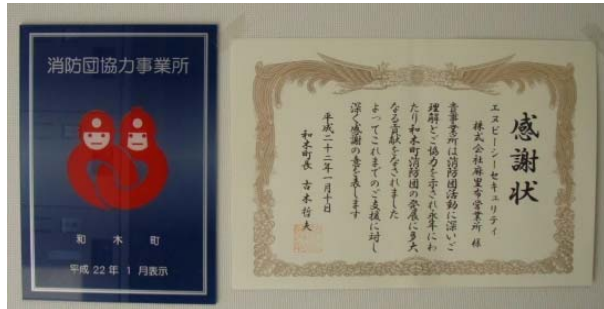 消防団協力事業所
和木町
平成22年1月表示
感謝状
エヌピーシーセキュリティ
株式会社麻里布営業所 様
貴事業所は消防団活動に深いご
理解とご協力を示され永年にわ
たり和木町消防団の発展に多大
なる貢献をなされました
よってこれまでのご支援に対し
深く感謝の意を表します
平成二十二年一月十日
和木町長 古木哲夫